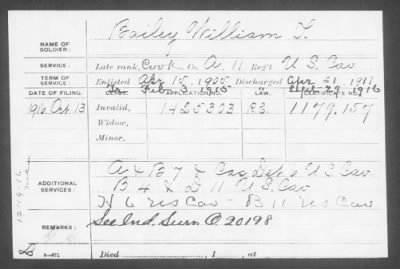 Bailey William T.
NAME OF SOLDIER:
SERVICE: Late rank, Co. A. 11 Reg't U S Cav
TERM OF SERVICE: Enlisted Apr 15, 1905 Discharged Apr 21, 1911
Feb. 3, 1915 Sept 29, 1916
DATE OF FILING. CLASS. APPLICATION NO. LAW. CERTIFICATE NO.
1916 Oct 13 Invalid, 1425323 R.S. 1179.157
Widow,
Minor,
A & B 7 & Cav U S Cav
ADDITIONAL SERVICES: B 4 & D 11 U S Cav
H 6 US Cav - B 11 US Cav
12-28-16
REMARKS: See Ind. Surv O. 20198
3-671 Died , 1 , at